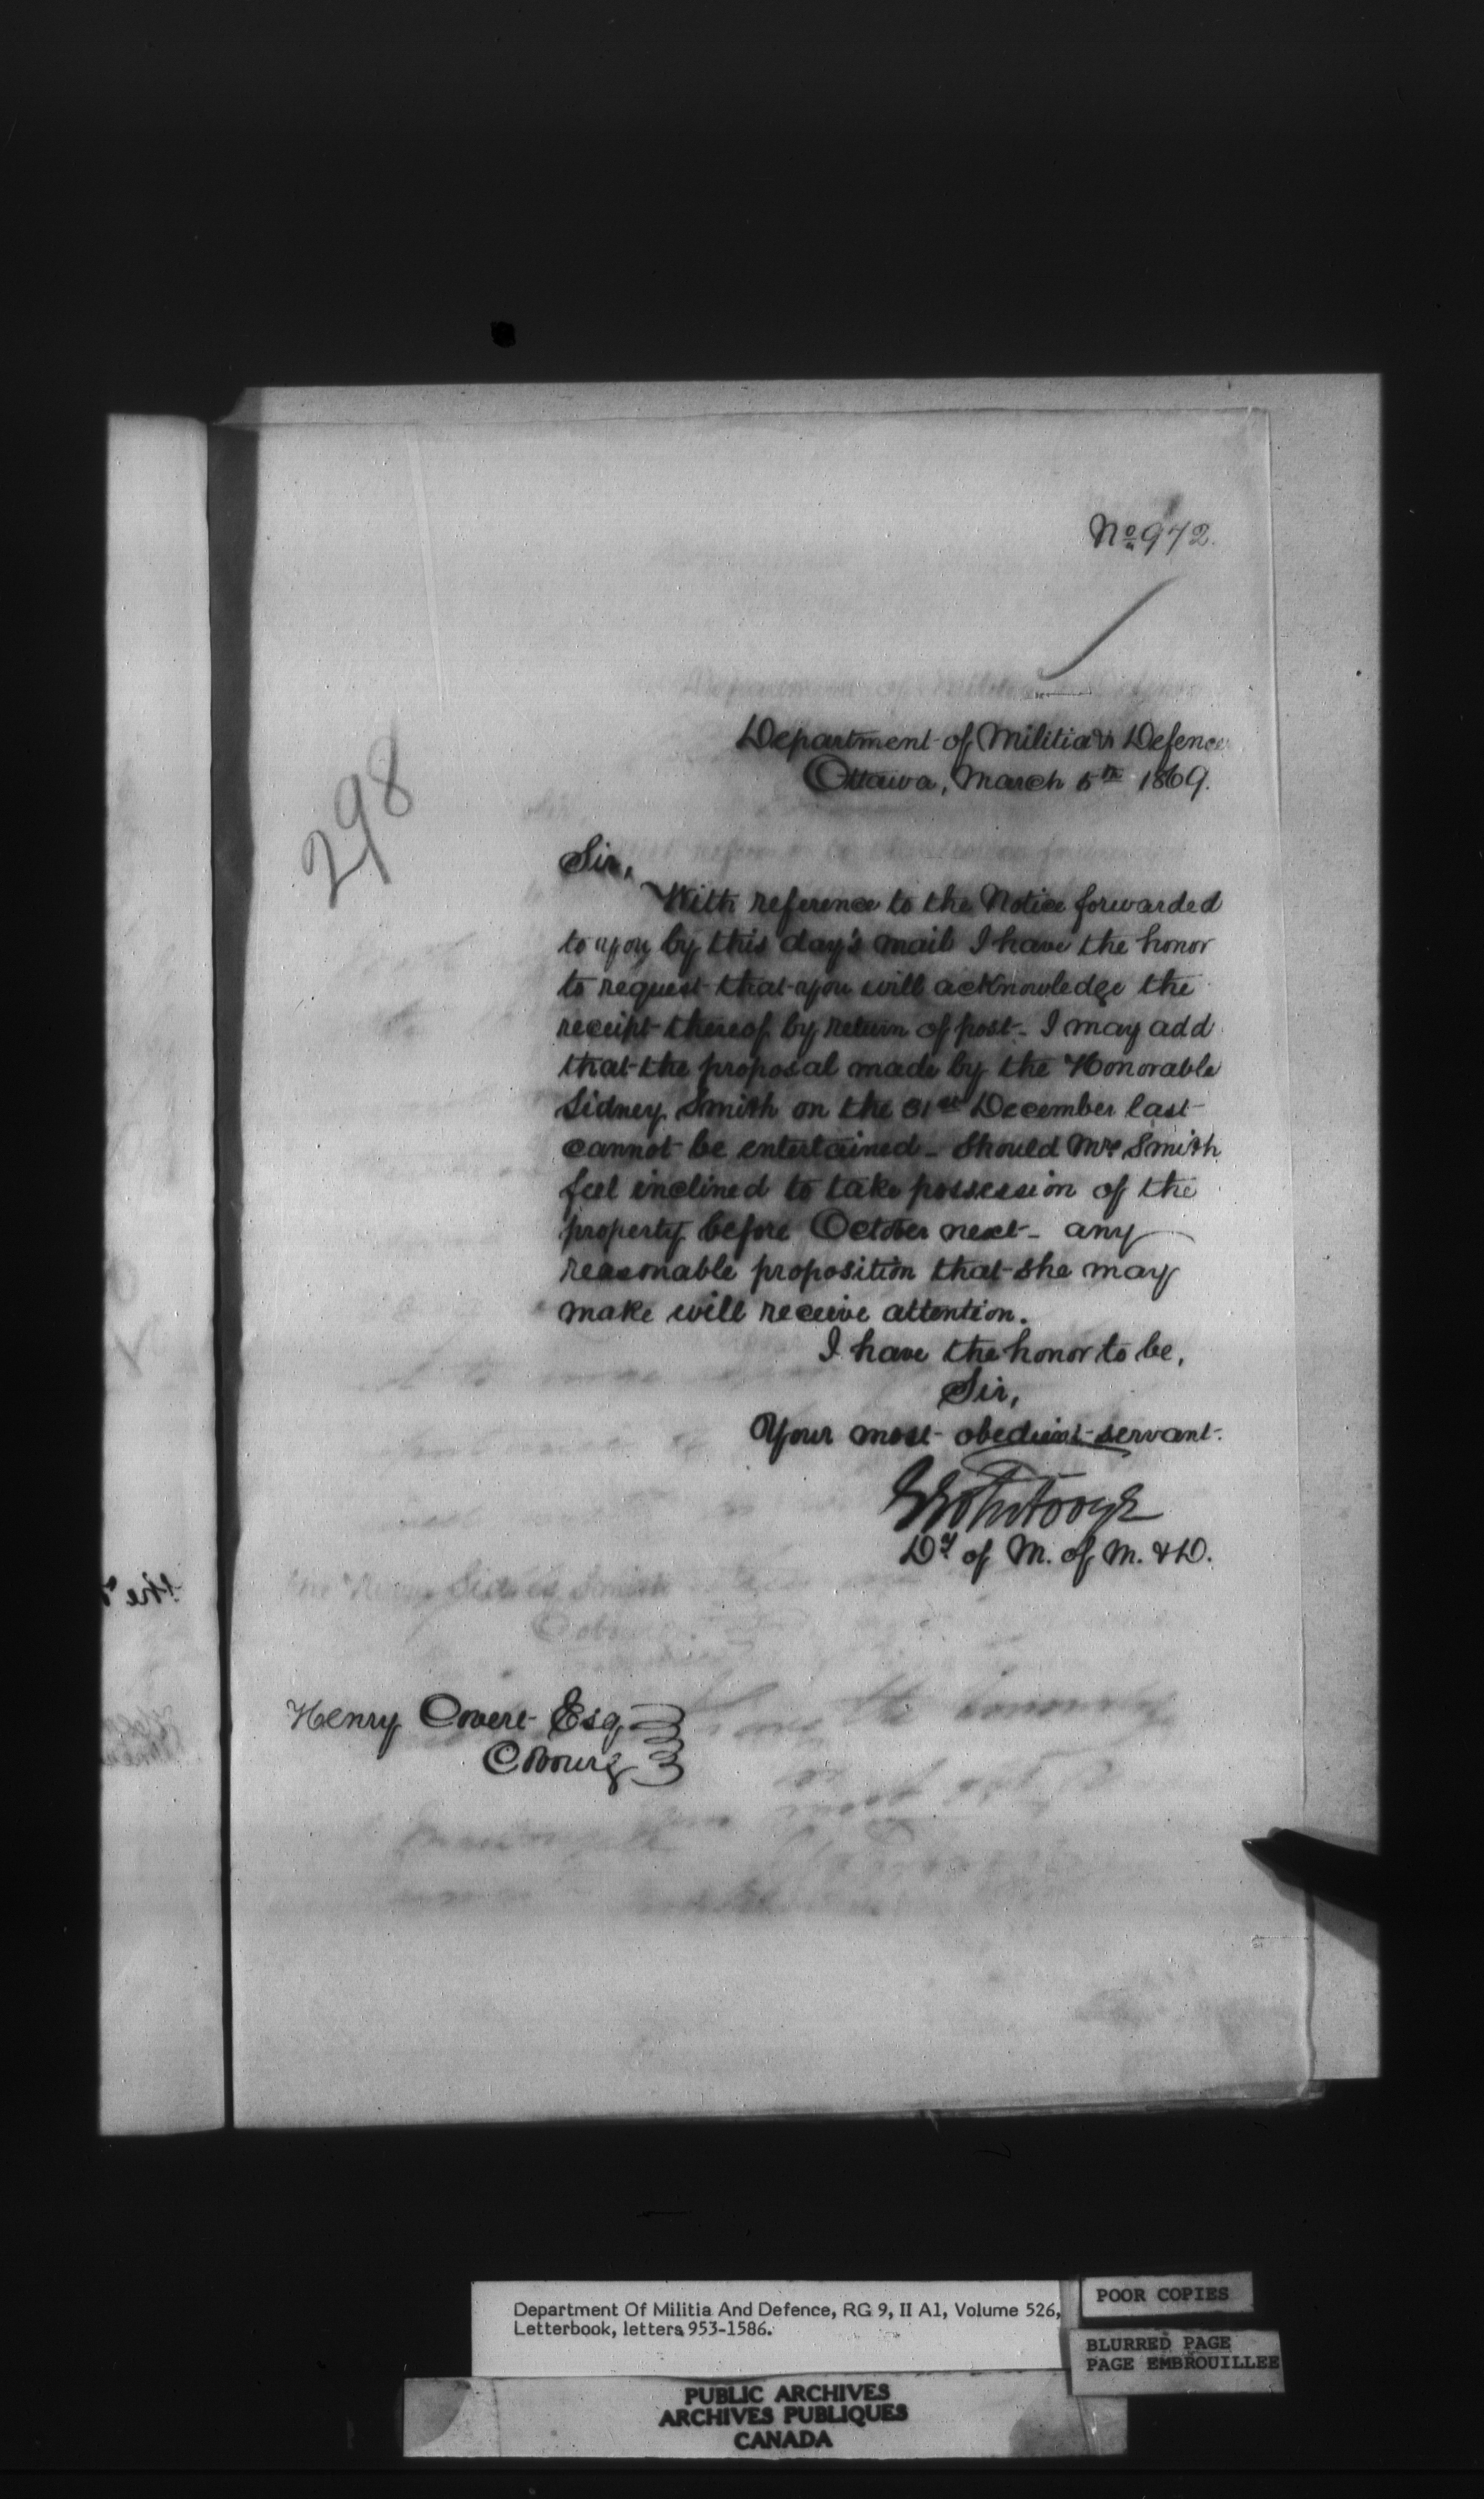 No 972.
298
Department of Militia & Defence
Ottawa, March 5th 1869.
Sir,
With reference to the Notice forwarded
to you by this day's mail I have the honor
to request that you will acknowledge the
receipt thereof by return of post - I may add
that the proposal made by the Honorable
Sidney Smith on the 31st December last
cannot be entertained - Should Mrs Smith
feel inclined to take possession of the
property before October next - any
reasonable proposition that she may
make will receive attention.
I have the honor to be,
Sir,
Your most obedient servant.
Dy of M. of M. & D.
Henry Covert Esq
Cobourg
Department Of Militia And Defence, RG 9, II A1, Volume 526,
Letterbook, letters 953-1586.
POOR COPIES
BLURRED PAGE
PAGE EMBROUILLEE
PUBLIC ARCHIVES
ARCHIVES PUBLIQUES
CANADA